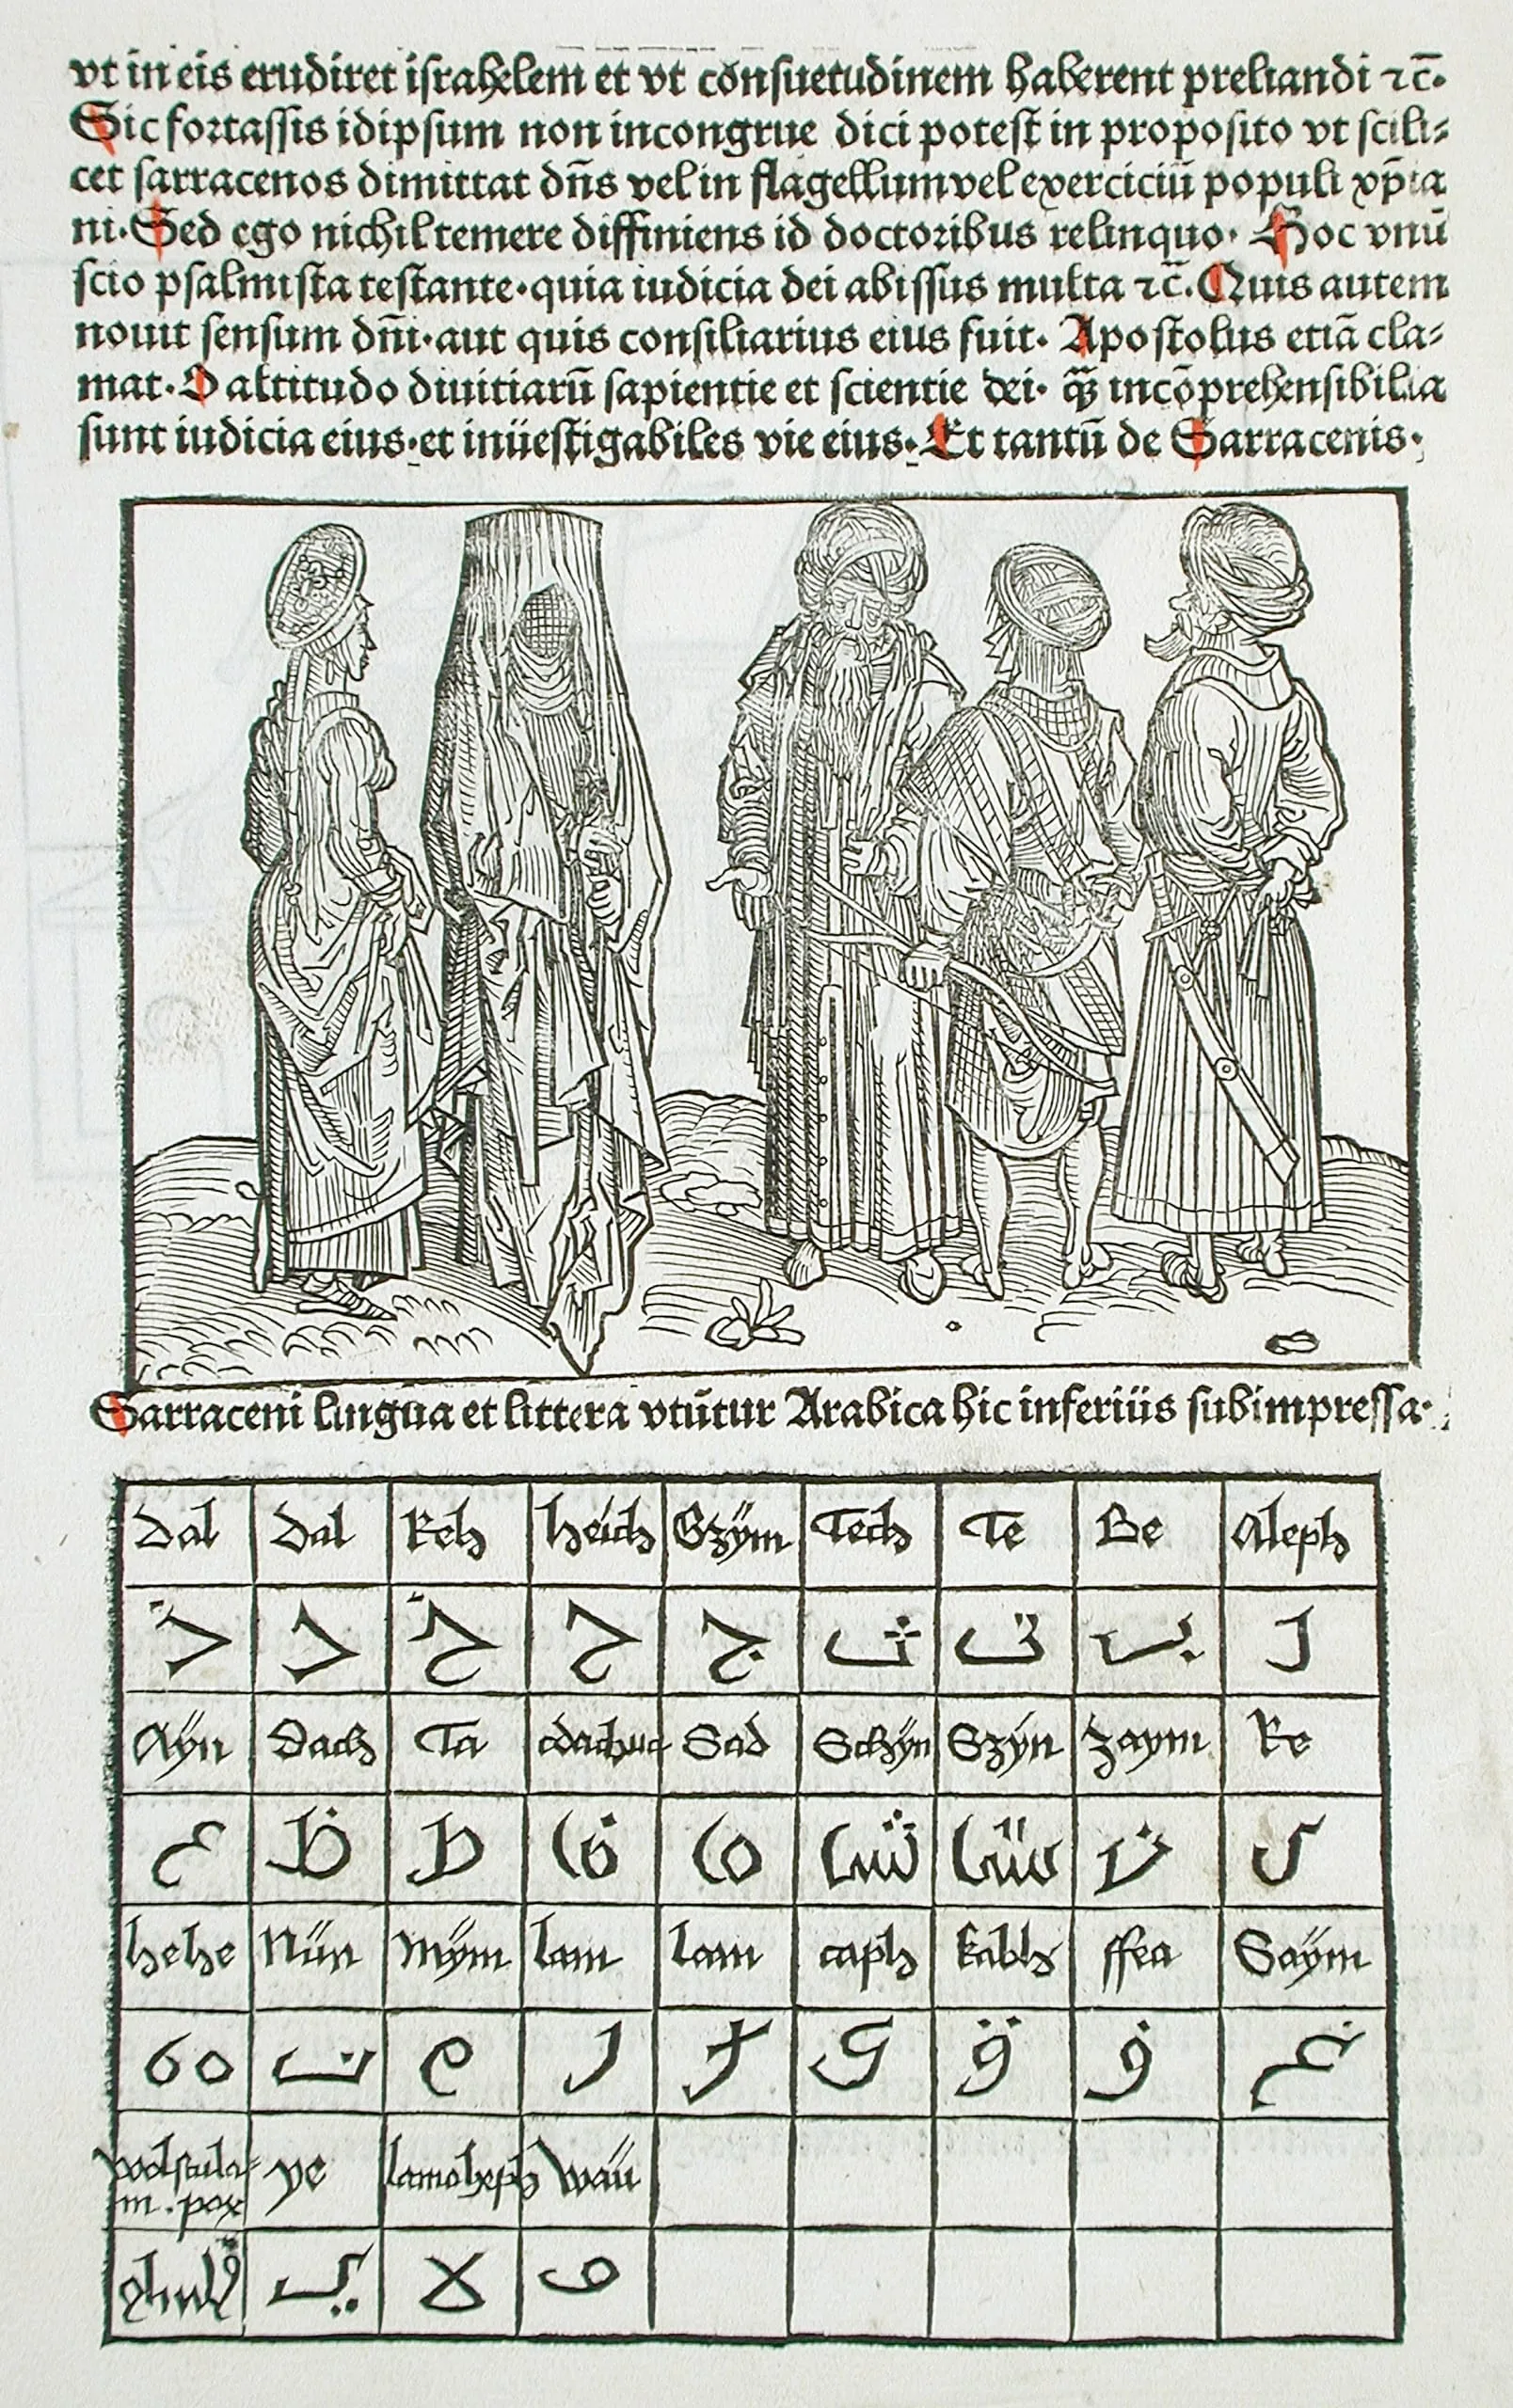 vt in eis erudiret israhelem et vt cōnsuetudinem haberent preliandi ⁊c̄.
Sic fortassis idipsum non incongrue dici potest in proposito vt scili⸗
cet sarracenos dimittat dn̄s vel in flagellum vel exerciciū populi xp̄ia
ni. Sed ego nichil temere diffiniens id doctoribus relinquo. Hoc vnū
scio psalmista testante. quia iudicia dei abissus multa ⁊c̄. Quis autem
nouit sensum dn̄i. aut quis consiliarius eius fuit. Apostolus etiā cla⸗
mat. O altitudo diuitiarū sapientie et scientie dei. incōprehensibilia
sunt iudicia eius. et inüestigabiles vie eius. Et tantū de Sarracenis.
Sarraceni lingua et littera vtūtur Arabica hic inferiüs subimpressa.
Dal Dal Reh heich Gzÿm Tech Te Be Aleph
ذ د خ ح ج ث ت ب ا
Aÿn Dach Ta Sad Schÿn Szÿn Zaym Re
ع ظ ط ض ص ش س ز ر
hehe Nün Mÿm lam lam caph kabh ffea Saÿm
ه ن م ل ل ك ق ف غ
ye lamoheph Waü
ي لا و